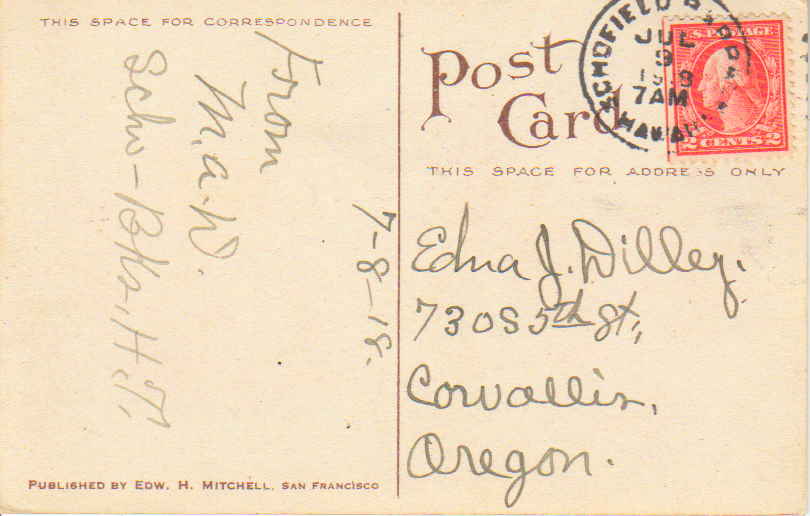 THIS SPACE FOR CORRESPONDENCE
From
M.A.D.
Scho-Bks., H.T.
7-8-18.
PUBLISHED BY EDW. H. MITCHELL, SAN FRANCISCO
Post
Card
THIS SPACE FOR ADDRESS ONLY
SCHOFIELD
JUL
9
7AM
HAWAII
U.S. POSTAGE
2 CENTS 2
Edna J. Dilley.
730 S 5th St.,
Corvallis,
Oregon.